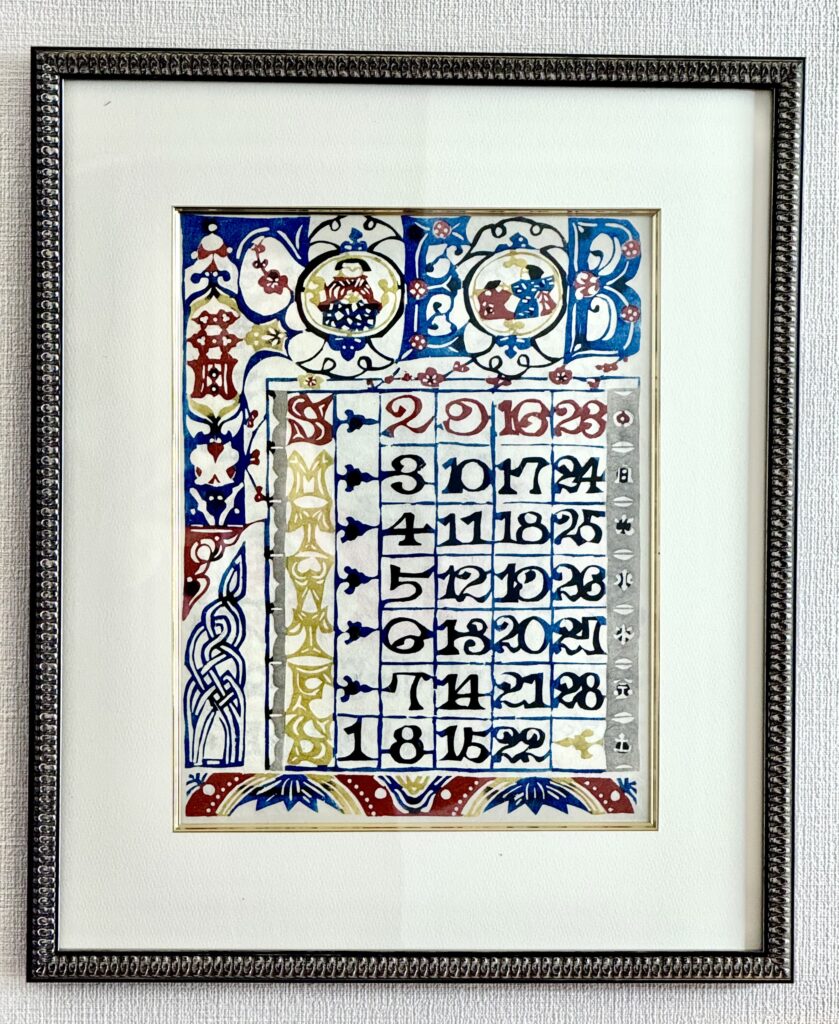 FEB
S 2 9 16 23
M 3 10 17 24
T 4 11 18 25
W 5 12 19 26
T 6 13 20 27
F 7 14 21 28
S 1 8 15 22